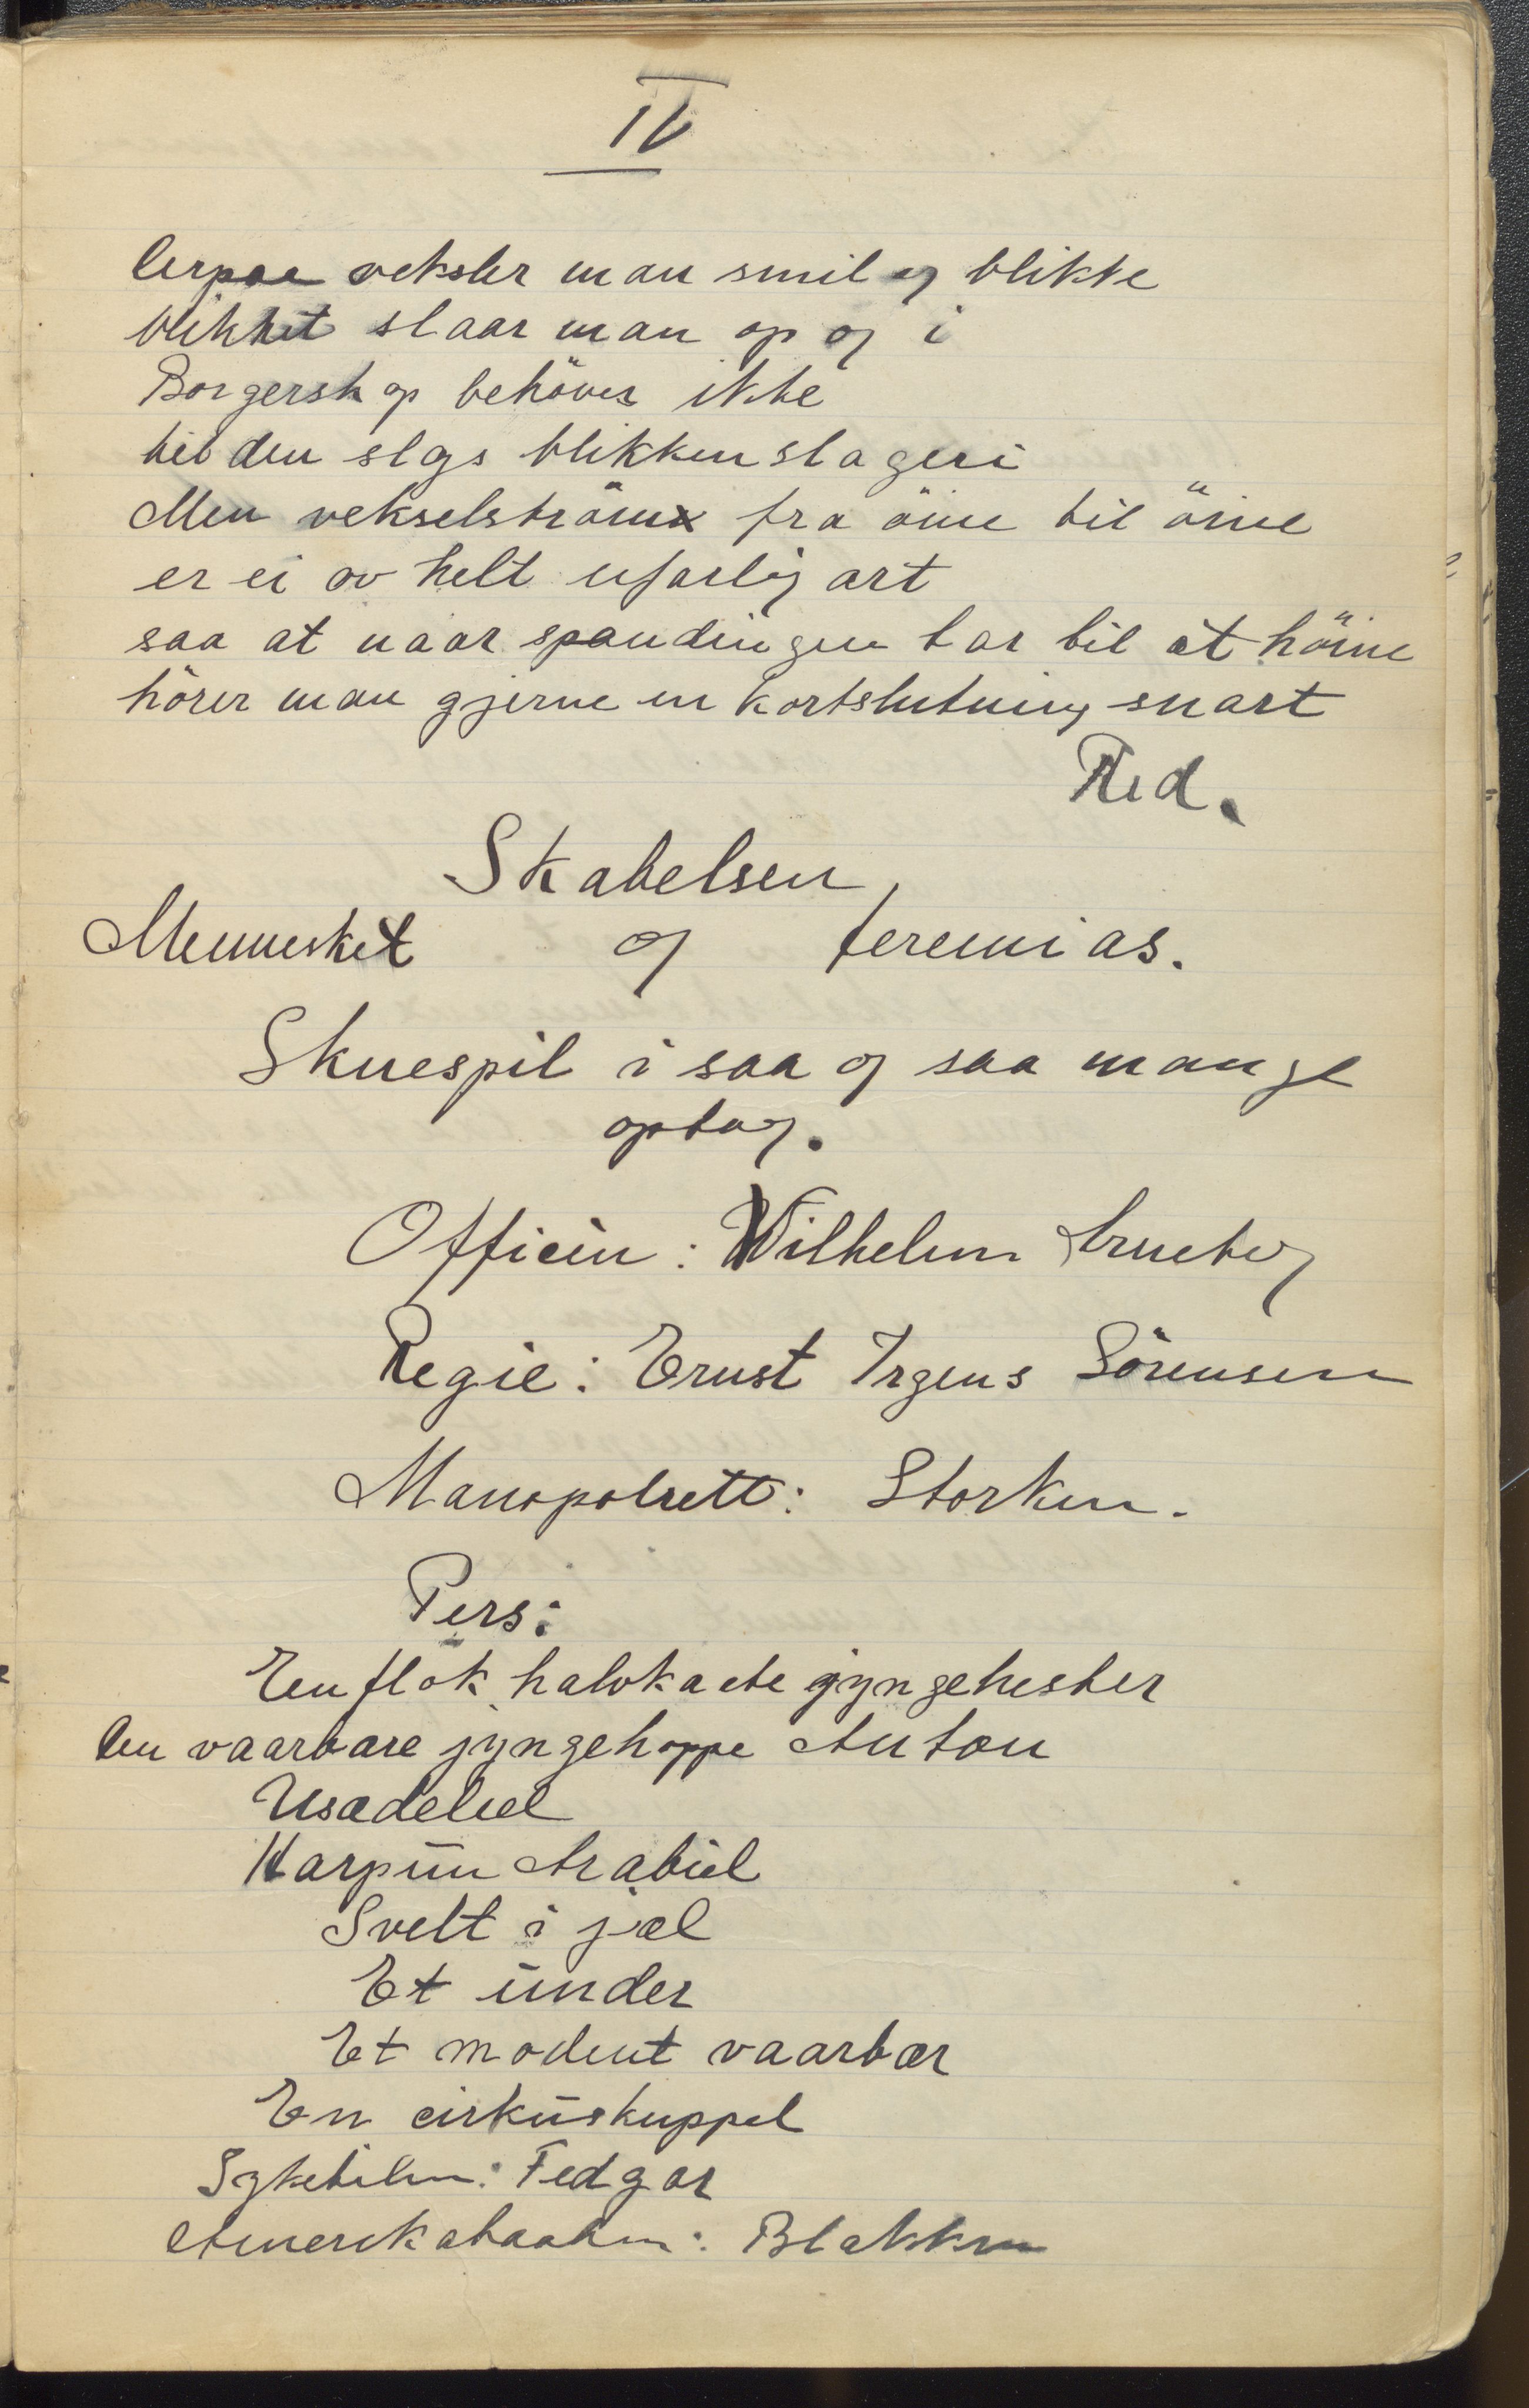 IV
Derpaa veksler man smil og blikke
blikket slaar man op og i
Borgerskap behöves ikke
til den slgs blikkenslageri
Men vekselström fra öine til öine
er ei av helt ufarlig art
saa at naar spændingen tar til at höine
hörer man gjerne en kortslutning snart
Red.
Skabelsen,
Mennesket og Jeremias.
Skuespil i saa og saa mange
optog.
Officin: Wilhelm
Regie: Ernst Irgens Sörensen
Manopolrett: Storken.
Pers:
En flok halvkaate gyngehester
Den vaarbare jyngehoppe Anton
Usædelied
Harpun Arabiel
Svelt i jæl
Et under
Et modent vaarbær
En cirkuskuppel
Sykebilen: Fedgar
Amerikabaaten: Blakken